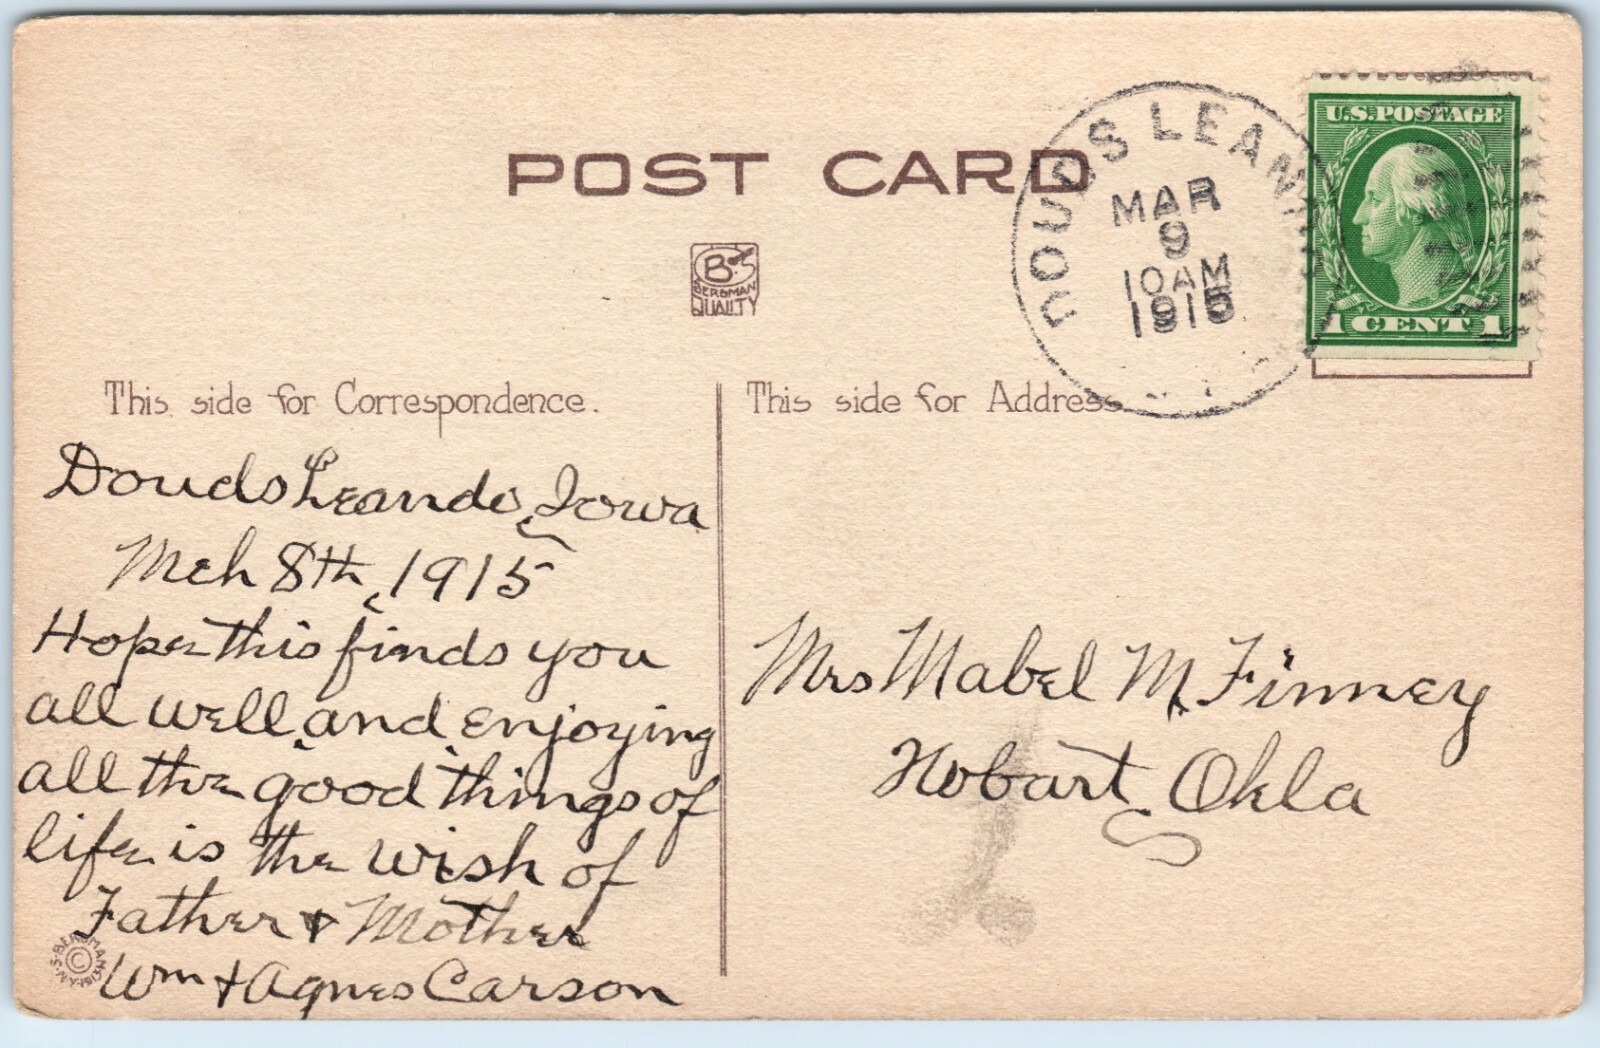 POST CARD
DOUDS LEAN
MAR
9
10 AM
1915
U.S. POSTAGE
1 CENT 1
B.S
BERGMAN
QUALITY
This side for Correspondence.
Douds Leando, Iowa
Mch 8th, 1915
Hope this finds you
all well, and enjoying
all the good things of
life is the wish of
Father & Mother
Wm & Agnes Carson
This side for Address
Mrs Mabel M. Finney
Hobart, Okla